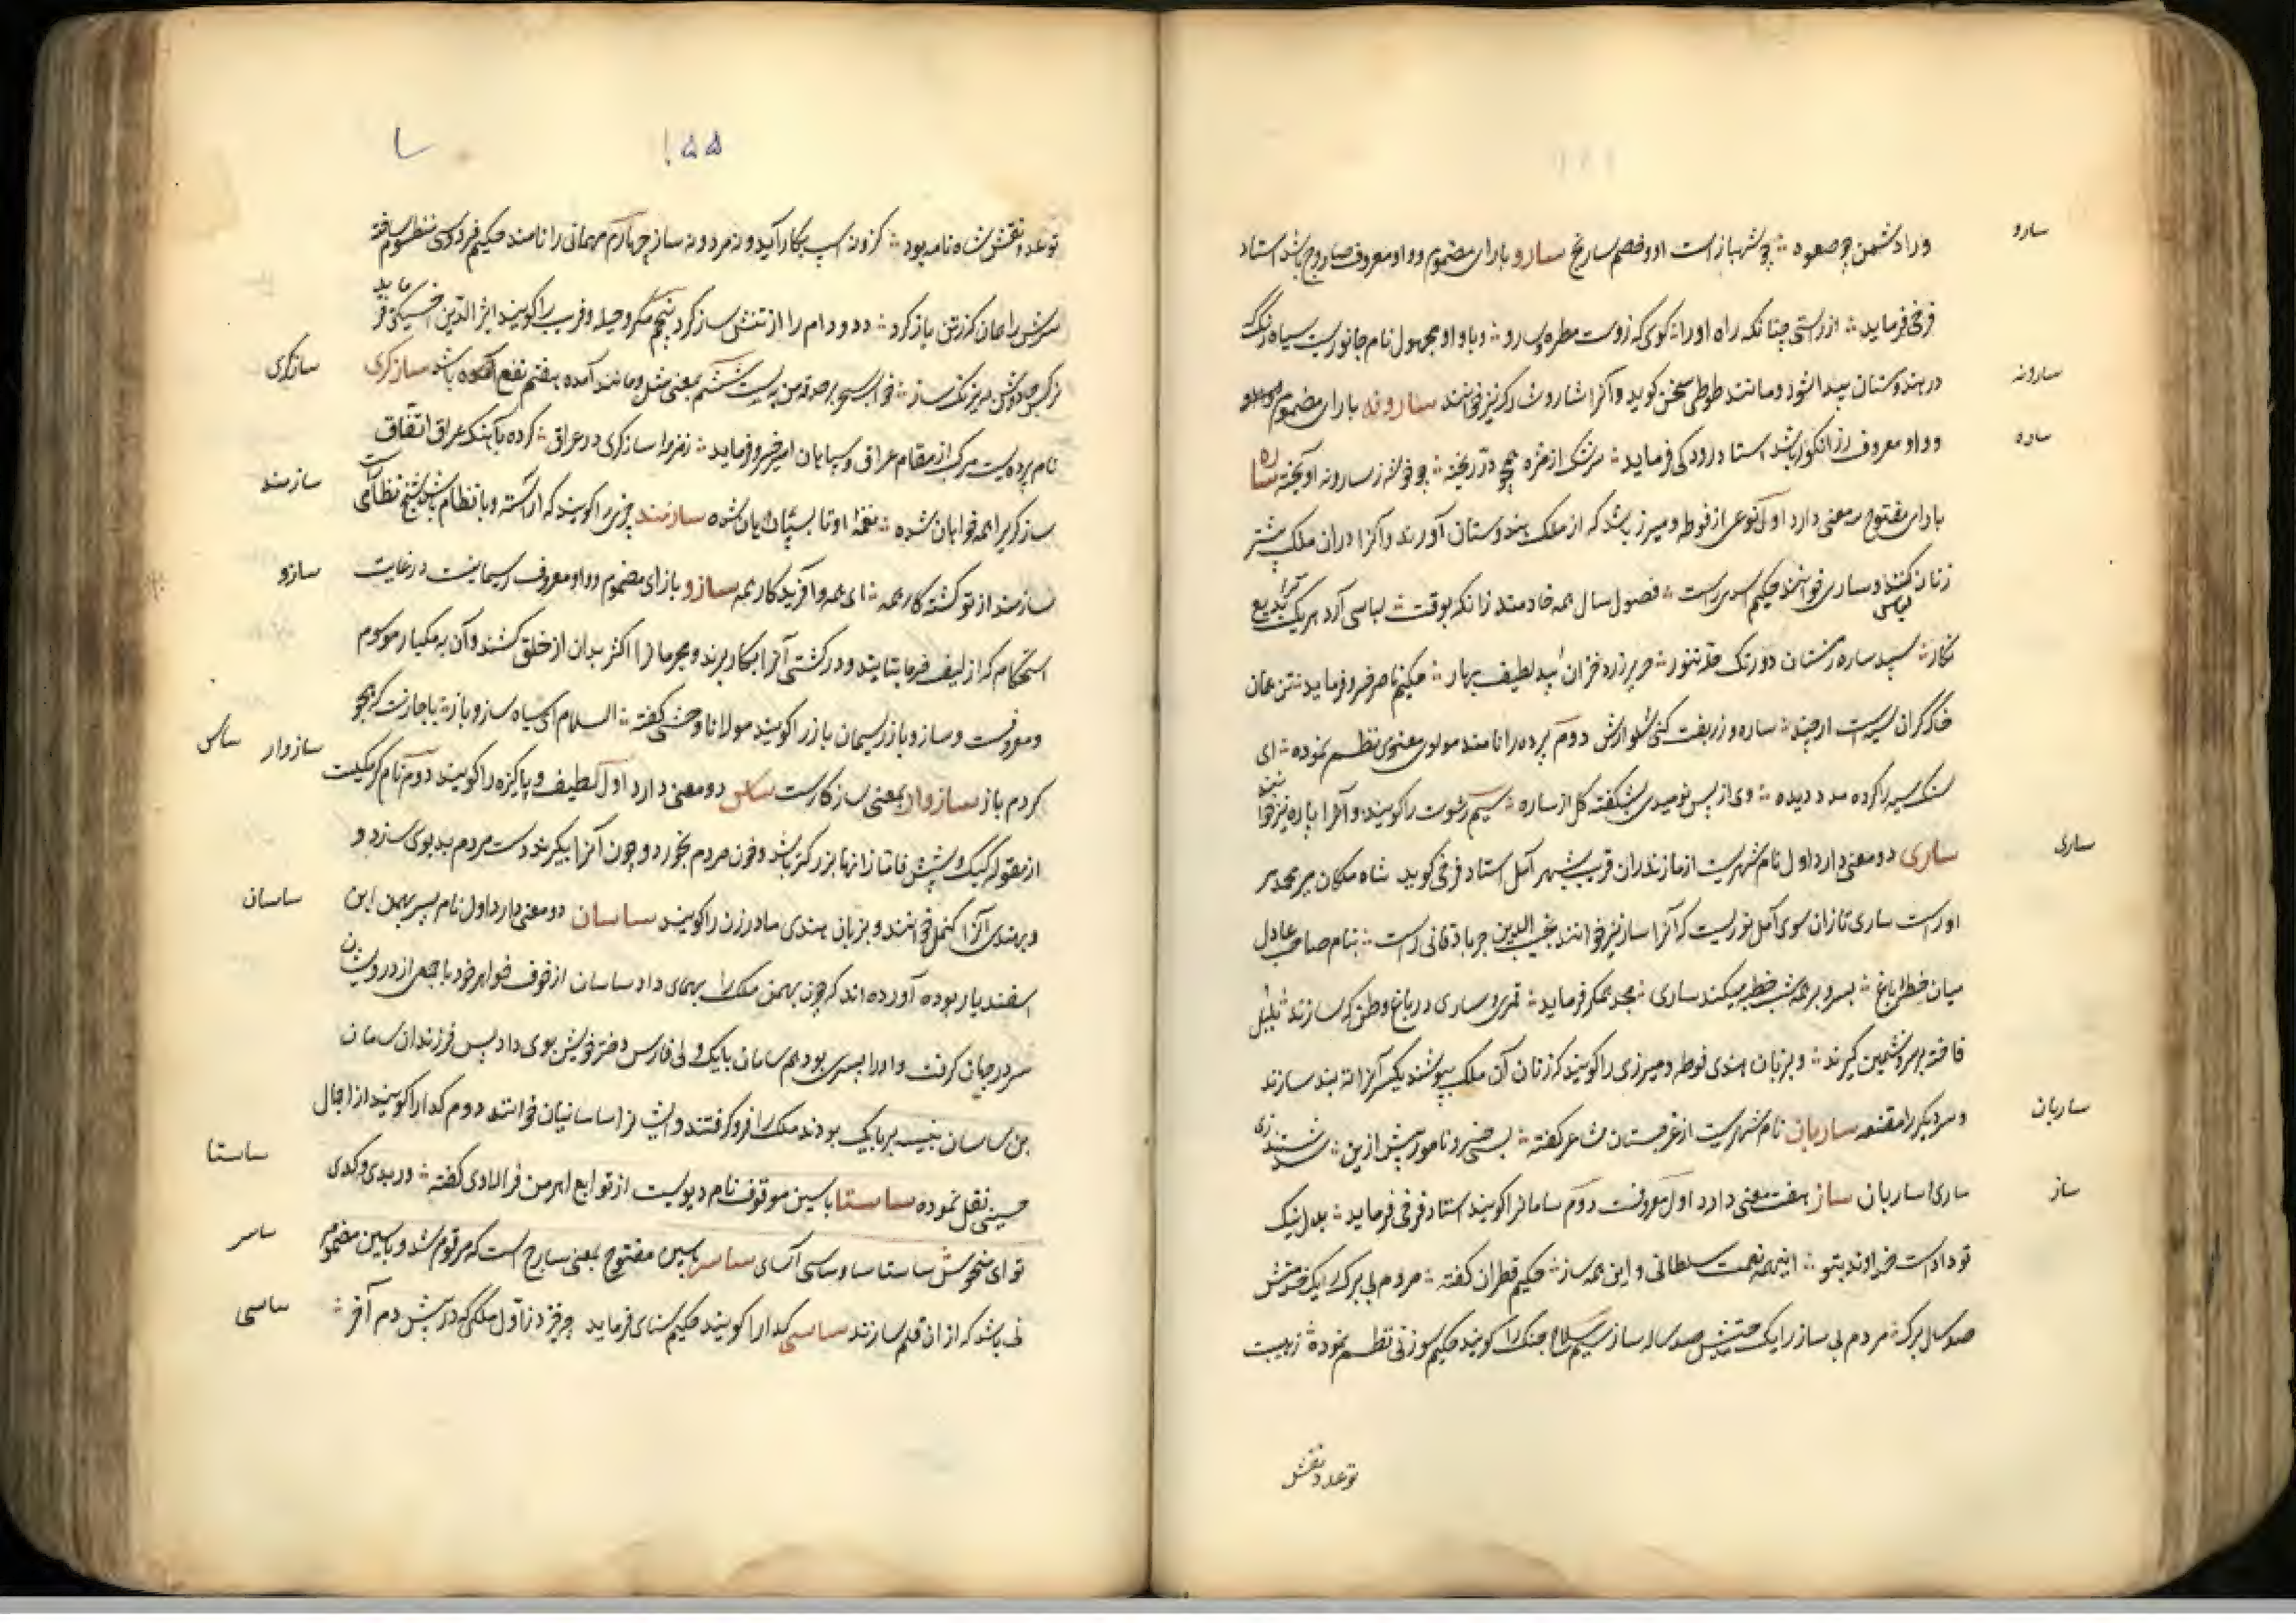 ساره
ورا دشمن چو صعوه ؞ چو شهباز است او و خصم سارنج سارو بارای مضموم و واو معروف صاروج باشد استاد
فرخی فرماید ؞ از راستی چنانکه راه اورا ؞ گوی که زدست مطره و سارو ؞ و با واو مجهول نام جانوریست سیاه رنگ که
سارونه
در هندوستان پیدا شود و مانند طوطی سخن گوید و آنرا شارو و شارک نیز خوانند سارونه بارای مضموم
ساره
و واو معروف رز انگور باشد استاد رودکی فرماید ؞ سرشک از مژه همچو در ریخته ؞ چو خوشه ز سارونه آویخته ساره
بارای مفتوح سه معنی دارد اول نوعی از فوطه و میزر باشد که از ملک هندوستان آورند و آنرا در آن ملک بیشتر
زنان کنند و ساری خوانند حکیم اسدی راست ؞ فصول سال همه خادمند زانکه بوقت ؞ لباسی آرد هریک ترا بدیع
نگار ؞ سپید ساره زمستان دورنگ حله تموز ؞ حریر زرد خزان پرنیان لطیف بهار ؞ حکیم ناصر خسرو فرماید ؞ تن همان
خاک گران سیه است ارچند ؞ ساره و زربفت کنی شلوارش دوم پرده را نامند مولوی معنوی نظم نموده ؞ ای
سنگ سیه را کرده مدد دیده ؞ وی از پس نومیدی بشکفته گل از ساره ؞ سیم رشوت را گویند و آنرا پاره نیز خوانند
ساری
ساری دو معنی دارد اول نام شهریست از مازندران قریب بشهر آمل استاد فرخی گوید شاه مکان میر محمد که
اوراست ساری تازان سوی آمل نوریست که آنرا سار نیز خوانند نجیب الدین جرباذقانی راست ؞ بنام صاحب عادل
میان خطرا باغ ؞ بسرو بر همه شب خطبه میکند ساری ؞ مجد همگر فرماید ؞ قمری و ساری در باغ وطن که سازند ؞ بلبل
فاخته بر سرو نشیمن گیرند ؞ و بزبان هندی فوطه و میزری را گویند که زنان آن ملک پوشند یکسر آنرا ته بند سازند
ساریان
و سر دیگر را مقنعه ساریان نام شهریست از غرجستان شاعر گفته ؞ بسی خسرو نامور پیش ازین ؞ شدستند زی
ساز
ساری و ساریان ساز هفت معنی دارد اول معروفست دوم سامانرا گویند استاد فرخی فرماید ؞ بدل نیک
تو دادست خداوند بتو ؞ اینهمه نعمت سلطانی و این همه ساز ؞ حکیم قطران گفته ؞ مردم بی برک را یک خوشش
صد سال برک ؞ مردم بی ساز را یک جنبشش صد ساله ساز سیم سلاح جنگ را گویند حکیم سوزنی نظم نموده ؞ زهیبت
تو عد و نقش
۱۵۵
تو عدو نقش شاه نامه بود ؞ کزو نه اسپ بکار آید و نه مرد و نه ساز چهارم مهمانی را نامند حکیم فردوسی منظوم ساخته
سرش را همان کز زتن باز کرد ؞ دد و دام را از تنش ساز کرد پنجم مکر و حیله و فریب را گویند اثیر الدین اخسیکتی فرماید
سازکری
ششم بمعنی مثل و مانند آمده هفتم نفع باشد سازکری
نام پرده ایست مرکب از مقام عراق و سپاهان امیر خسرو فرماید ؞ زمزمه ساز کری در عراق ؞ کرده بآهنگ عراق اتفاق
سازمند
ساز کریرا همه خوا بان شده ؞ نغمه او تا بسپاهان شده سازمند چیزی را گویند که آراسته و با نظام باشد شیخ نظامی راست
سازو
سازمند از تو گشته کار همه ؞ ای همه و آفریدگار همه سازو بازای مضموم و واو معروف ریسمانیست در غایت
استحکام که از لیف خرما بتابند و در کشتی آنرا بکار برند و مجرمانرا اکثر بدان از حلق کشند و آن به مکیار موسوم
و معروفست و سازو باز ریسمان باز را گویند مولانا وحشی گفته ؞ السلام ای سیاه سازو باز ؞ باجازت که همچو
سازوار ساس
کردم باز سازوار بمعنی سازگارست ساس دو معنی دارد اول لطیف و پاکیزه را گویند دوم نام کرمیکیست
از مقوله کیک و شپش فاما از آنها بزرگتر باشد و خون مردم بخورد و چون آنرا بگیرند دست مردم بدبوی سازد و
ساسان
و بهندی آنرا کتمل خوانند و بزبان هندی مادر زن را گویند ساسان دو معنی دارد اول نام پسر بهمن ابن
اسفندیار بوده آورده اند که چون بهمن ملک را بهمای داد ساسان از خوف خواهر خود با جمعی از درویشان
سر در جهان گرفت و اورا پسری بود هم ساسان بابک والی فارس دختر خویش بوی داد پس فرزندان ساسان
بن ساسان نبیسه بر بابک بودند ملک را فرو گرفتند و ایشانرا ساسانیان خوانند دوم گدارا گویند از اجمال
ساستا
حسینی نقل نموده ساستا باسین موقوف نام دیویست از توابع اهرمن فرالادی گفته ؞ در بدی و گدی
ساسر
توای منحوس ساستا سا و ساسی آسای ساسر باسین مفتوح بمعنی سارج است که مرقوم شد و باسین مضموم
ساسی
نی باشد که از ان قلم سازند ساسی گدارا گویند حکیم سنای فرماید چه خیزد ز اول ملکی که در پیش دم آخر ؞